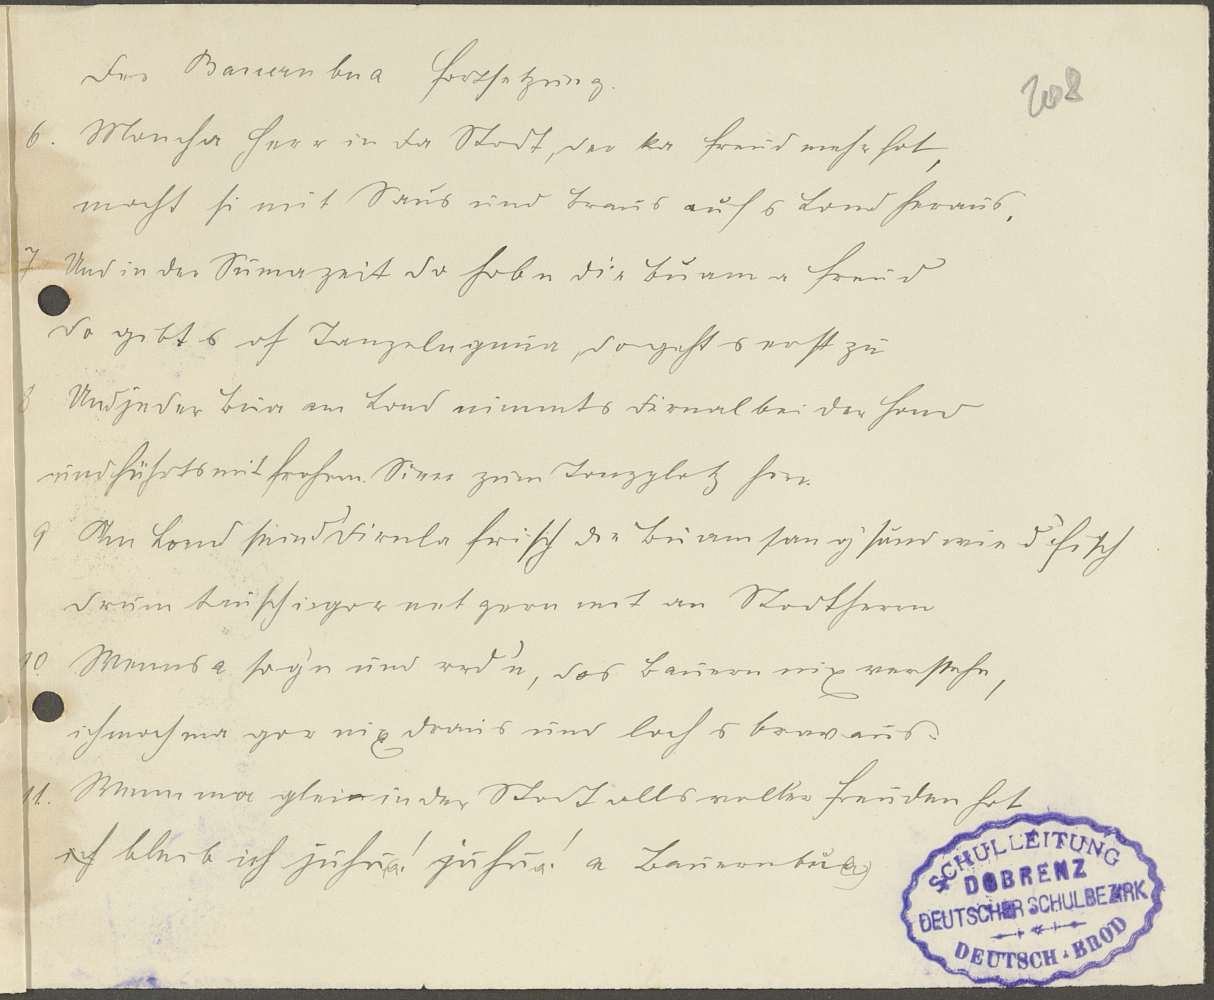 Der Bauernbua Fortsetzung.
208
6. Moncha Herr in da Stodt, der ka Freud mehr hot,
mocht si mit Saus und Braus aufs Lond heraus.
7 Und in der Sumazeit do hobn die Buam a Freud
do gibts of Tanzeln gnua, do gehts erst zu
8 Und jeder Bua am Lond nimmts Dirnal bei der Hond
und führts mit frohem Sinn zum Tonzplotz hin.
9 Am Lond seind d' Dirnla frisch die Buam san g'sund wie d' Fisch
drum tausch i gor net gern mit an Stodtherrn
10 Wenns a sog'n und red'n, dos Bauern nix verstehn,
ich moch ma gor nix draus und loch s brav aus.
11. Wenn ma glei in der Stodt olls voller Freuden hot
ich bleib ich juhua! juhua! a Bauernbua
SCHULLEITUNG
DOBRENZ
DEUTSCHER SCHULBEZIRK
DEUTSCH-BROD